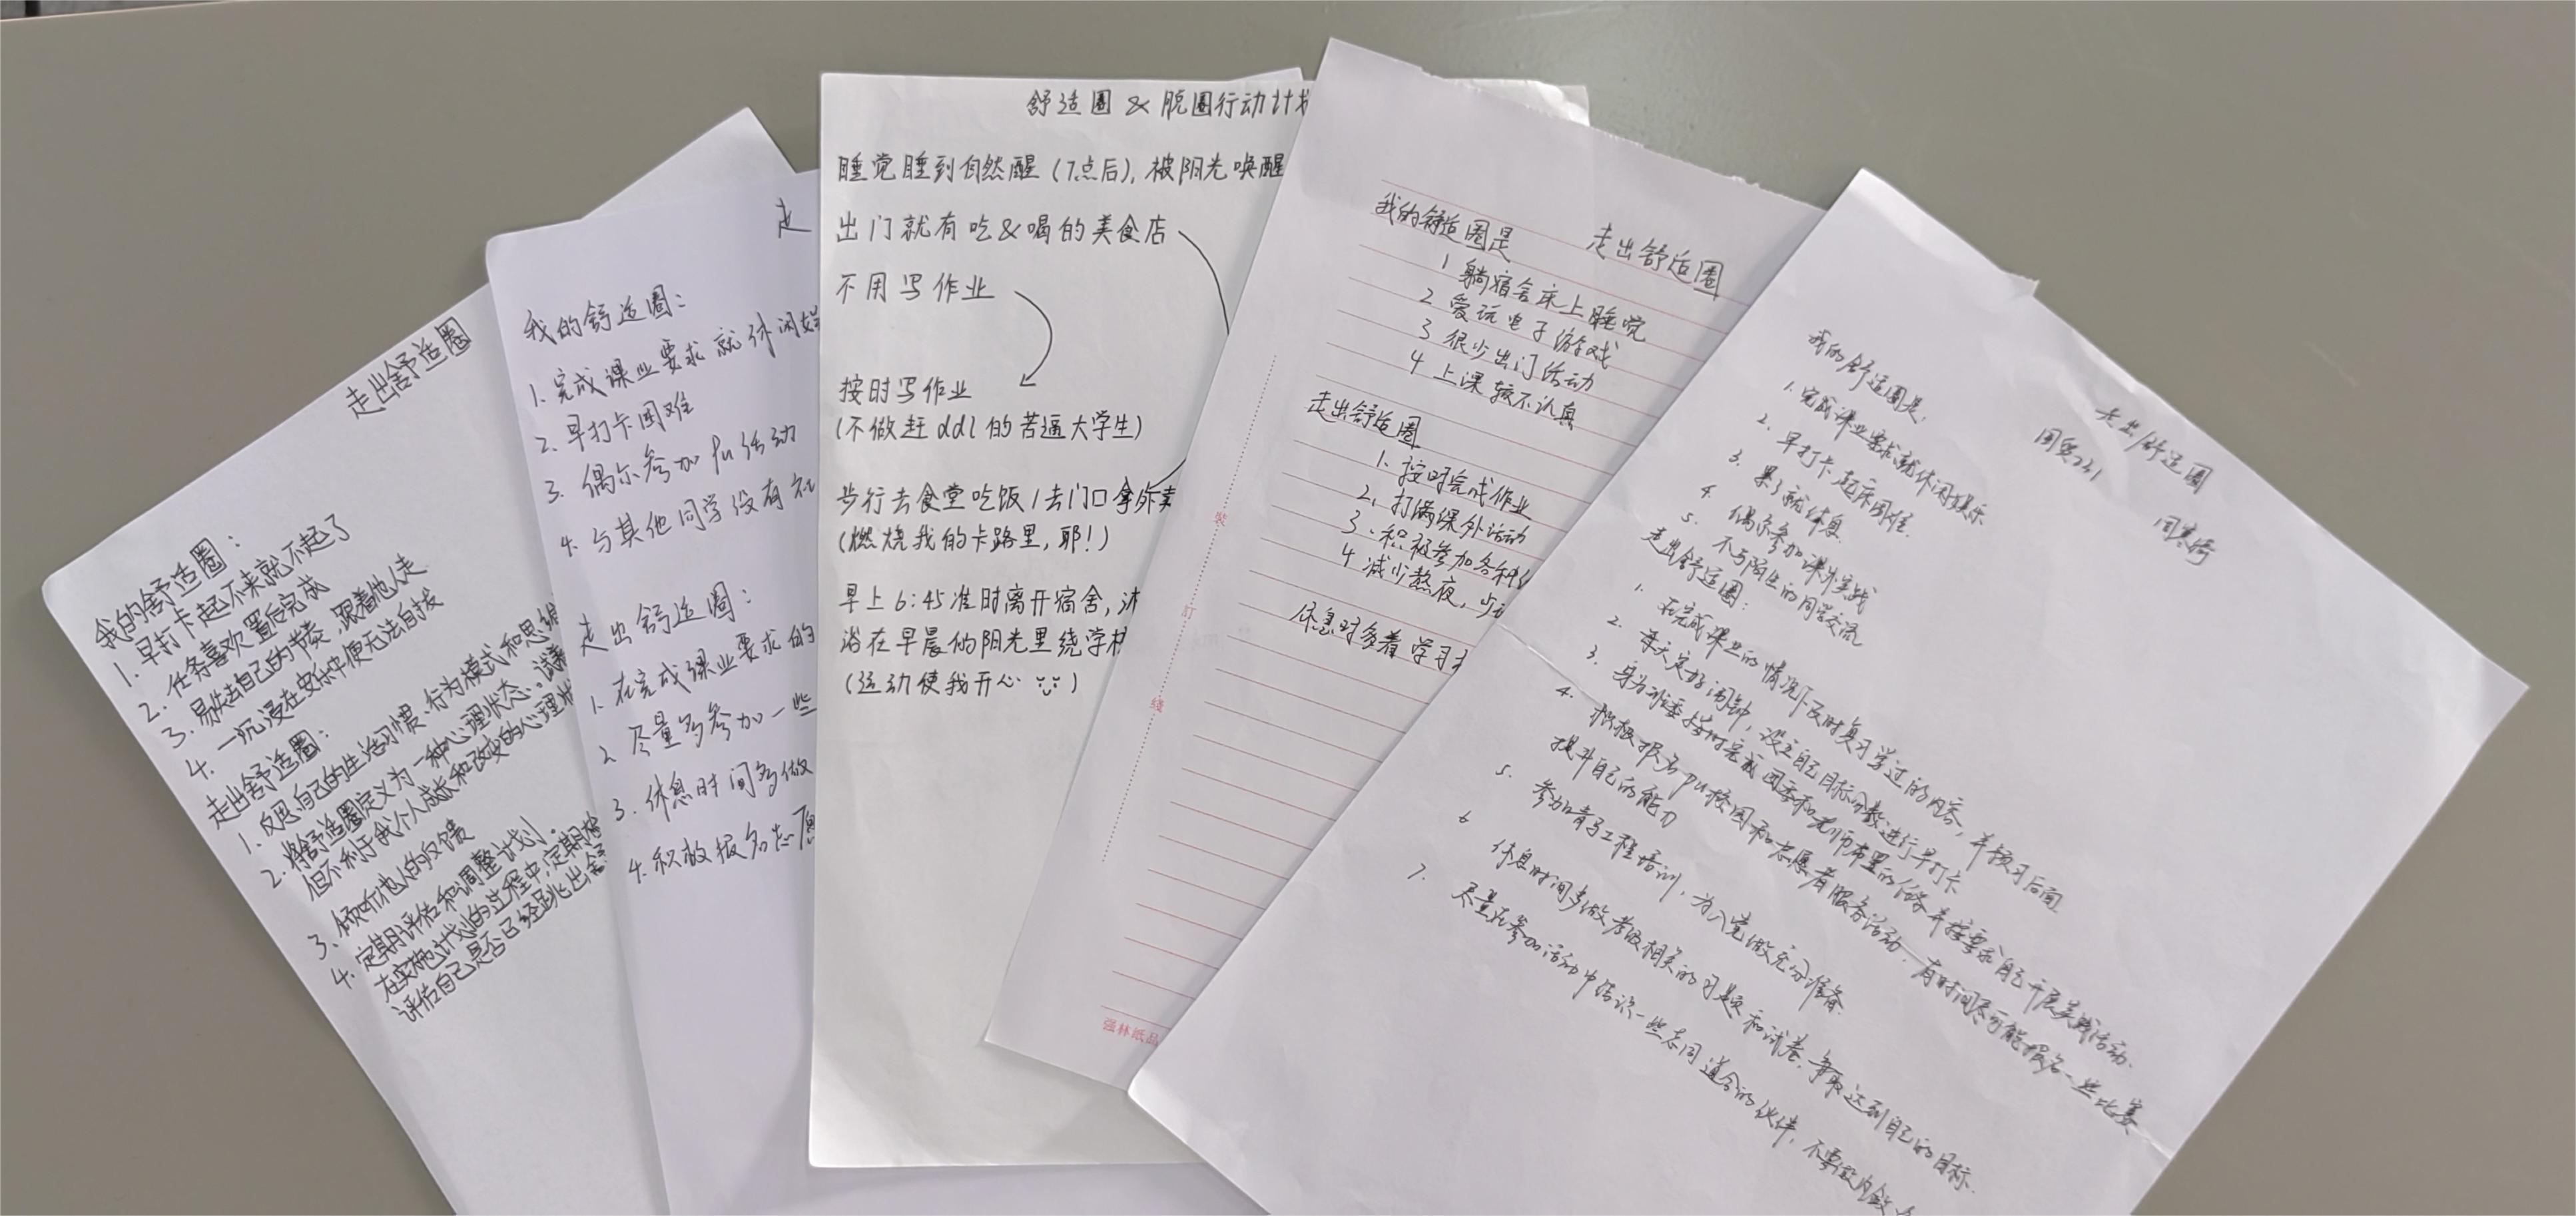 走出舒适圈
我的舒适圈：
1. 早打卡起不来就不起了
2. 任务喜欢置后完成
3. 易失去自己的节奏，跟着他人走
4. 一沉浸在安乐中便无法自拔
走出舒适圈：
1. 反思自己的生活习惯、行为模式和思维
2. 将舒适圈定义为一种心理状态，试着
但不利于我个人成长和改变的心理状
3. 倾听他人的反馈
4. 定期评估和调整计划。
在实施计划的过程中，定期
评估自己是否已经跳出舍
走
我的舒适圈：
1. 完成课业要求就休闲娱
2. 早打卡困难
3. 偶尔参加pu活动
4. 与其他同学没有
走出舒适圈：
1. 在完成课业要求的
2. 尽量多参加一些
3. 休息时间多做
4. 积极报名志愿
舒适圈 & 脱圈行动计划
睡觉睡到自然醒（7点后），被阳光唤醒
出门就有吃&喝的美食店
不用写作业
按时写作业
（不做赶ddl的苦逼大学生）
步行去食堂吃饭/去门口拿外卖
（燃烧我的卡路里，耶！）
早上6:45准时离开宿舍，沐
浴在早晨的阳光里绕学校
（运动使我开心）
走出舒适圈
我的舒适圈是
1 躺宿舍床上睡觉
2 爱玩电子游戏
3 很少出门活动
4 上课较不认真
走出舒适圈
1. 按时完成作业
2. 打满课外活动
3. 积极参加各种
4 减少熬夜，
休息时多看学习
装
订
线
强林纸品
走出舒适圈
我的舒适圈是：
1. 完成课业要求就休闲娱乐
2. 早打卡起床困难.
3. 累了就休息
4. 偶尔参加课外实践
5. 不与陌生的同学交流
走出舒适圈：
1. 在完成课业的情况下及时复习学过的内容，并预习后面
2. 每天定好闹钟，设立自己目标分数进行早打卡
3. 身为班委按时完成团委和老师布置的任务并按要求自己开展实践活动.
4. 积极报名pu校园和志愿者服务活动，有时间尽可能报名一些比赛
提升自己的能力
5. 参加青马工程培训，为入党做充分准备.
6 休息时间多做考级相关的习题和试卷，争取达到自己的目标.
7. 尽量在参加活动中结识一些志同道合的伙伴，不要做内敛